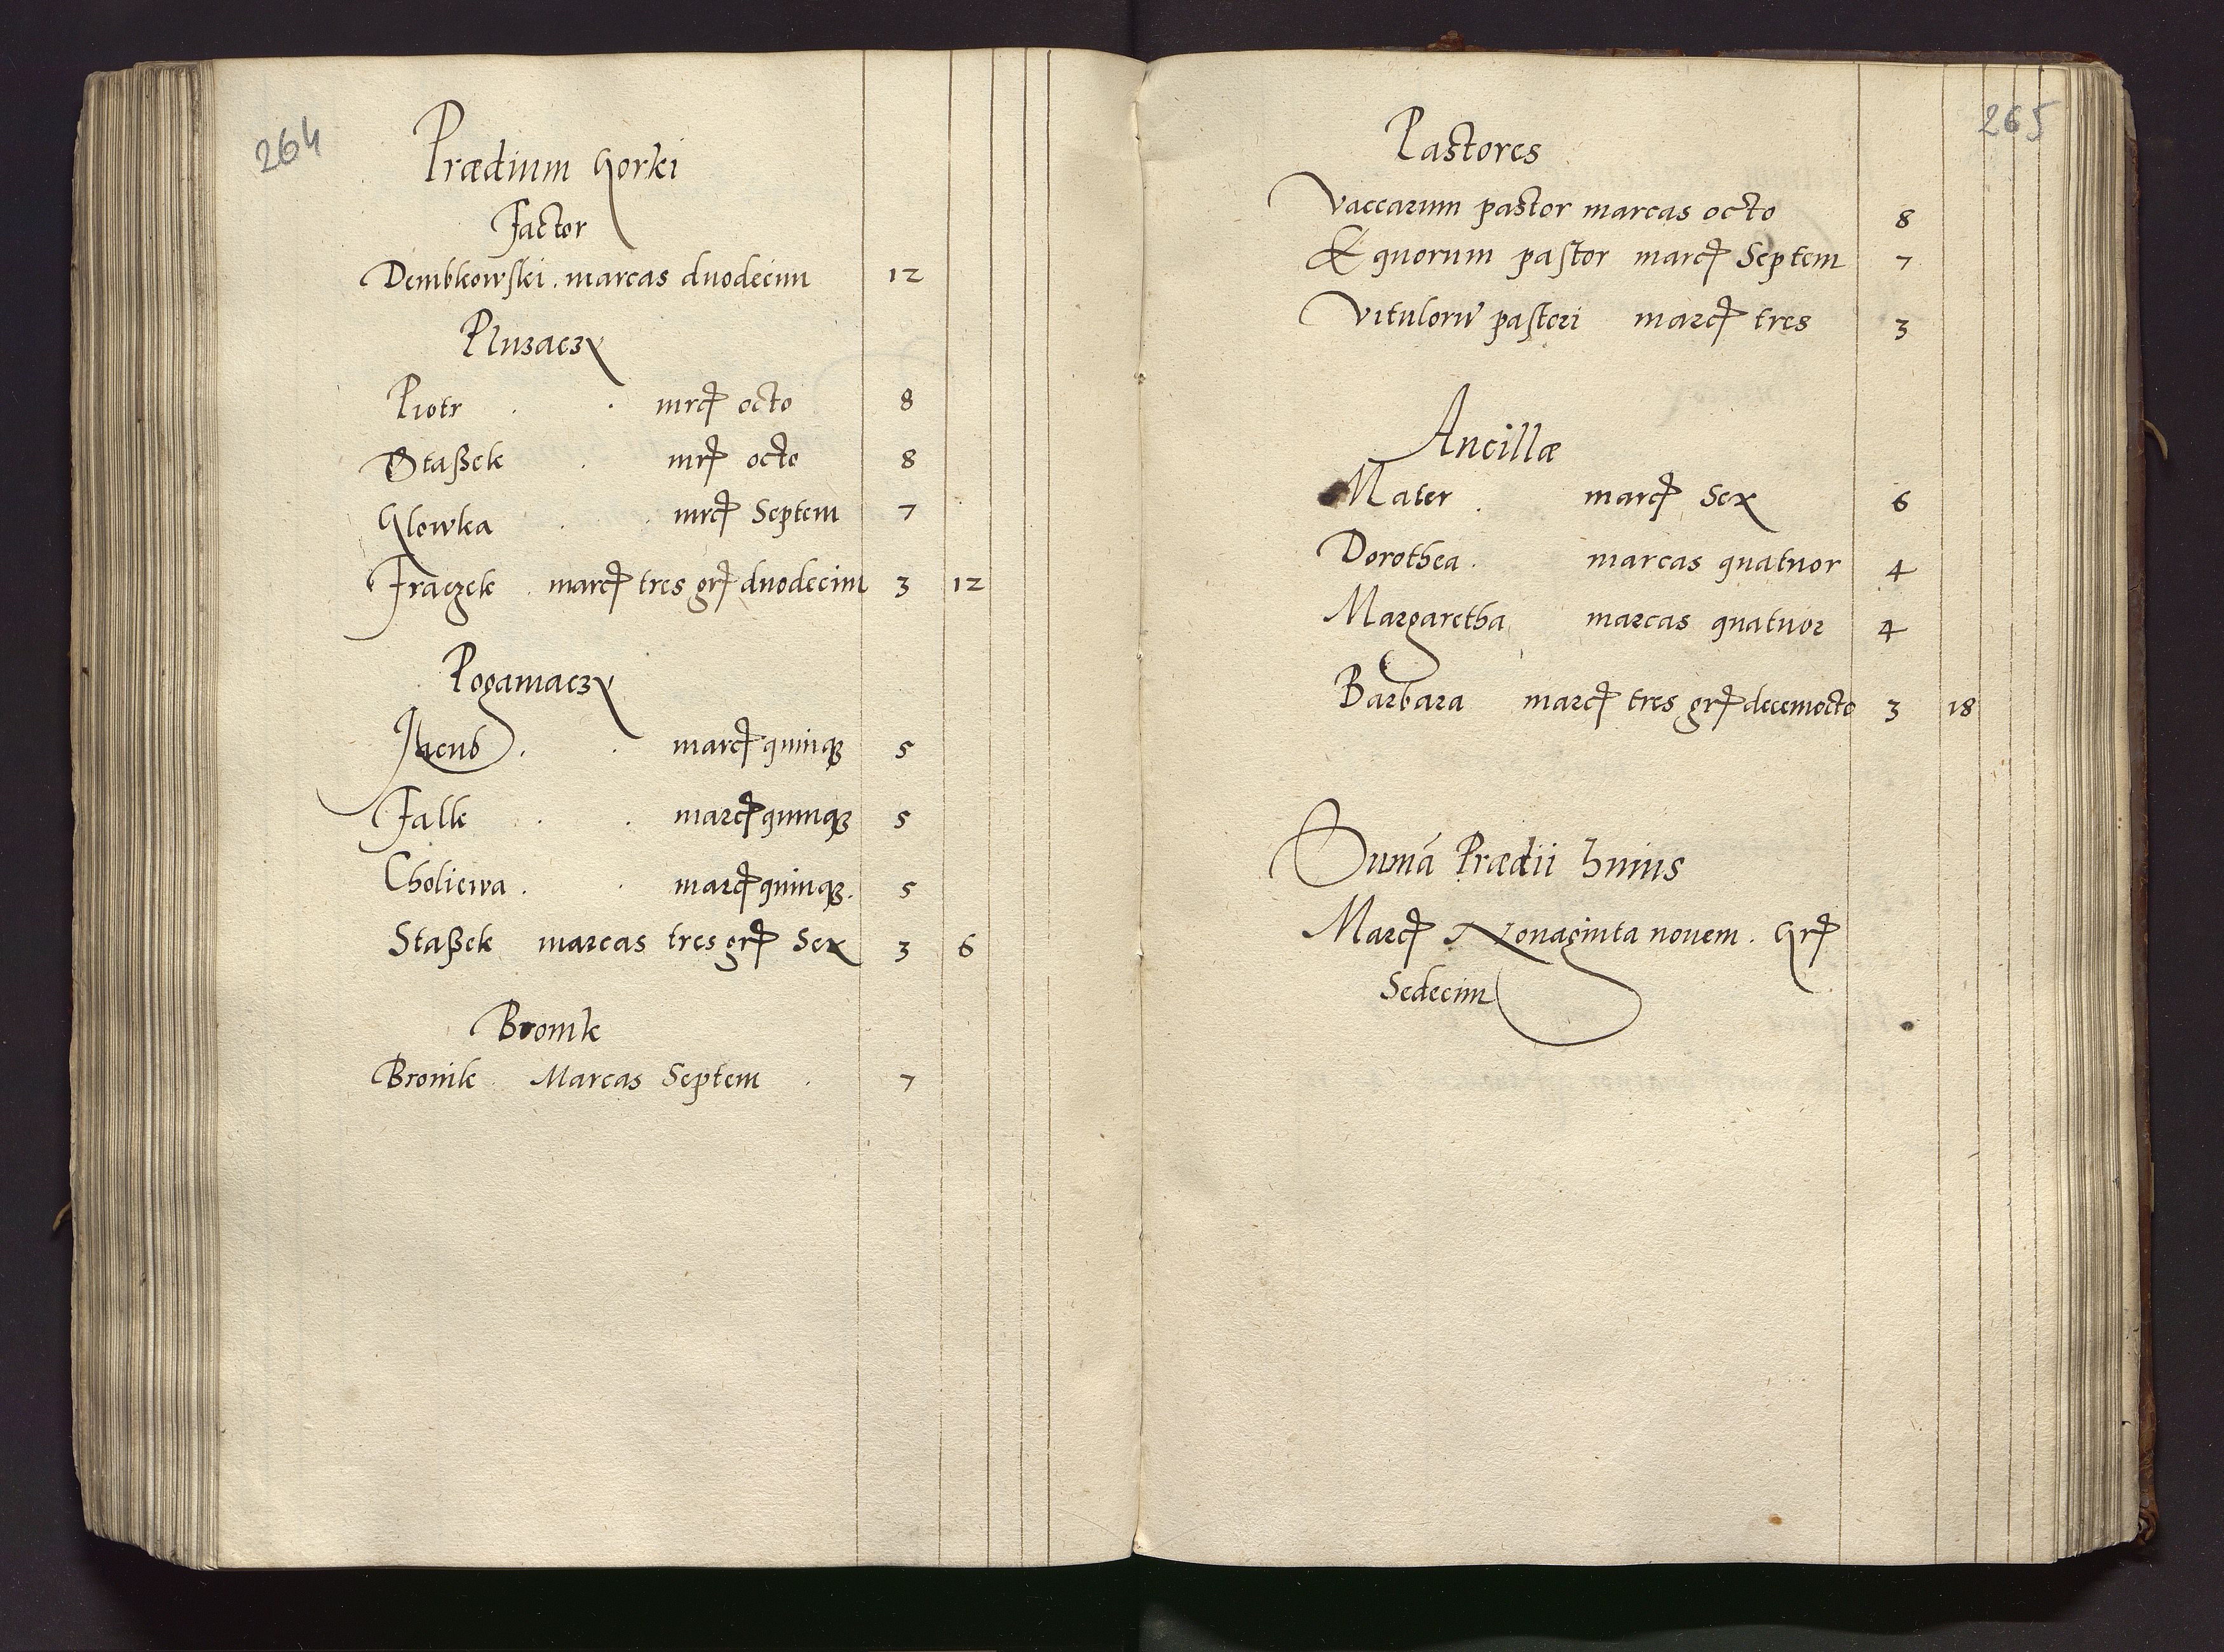 264
Prædium Gorki
Factor
Dembkowski . marcas duodecim 12
Pluzaczy
Piotr . . mrcꝭ octo 8
Staßek . mrꝭ octo 8
Glowka . . mrcꝭ Septem 7
Fraczek . marcꝭ tres grꝭ duodecim 3 12
Poganiaczy
Jacub . . marcꝭ quinqꝫ 5
Falk . . marcꝭ quinqꝫ 5
Choliewa . . marcꝭ quinqꝫ . 5
Staßek marcas tres grꝭ Sex 3 6
Bronik
Bronik Marcas Septem . 7
265
Pastores
Vaccarum pastor marcas octo 8
Equorum pastor marcꝭ Septem 7
Vitulorū pastori marcꝭ tres 3
Ancillæ
Mater . marcꝭ Sex 6
Dorothea . marcas quatuor 4
Margaretha marcas quatuor 4
Barbara marcꝭ tres grꝭ decemocto 3 18
Sumā Prædii huius
Marcꝭ Nonaginta nouem . Grꝭ
Sedecim